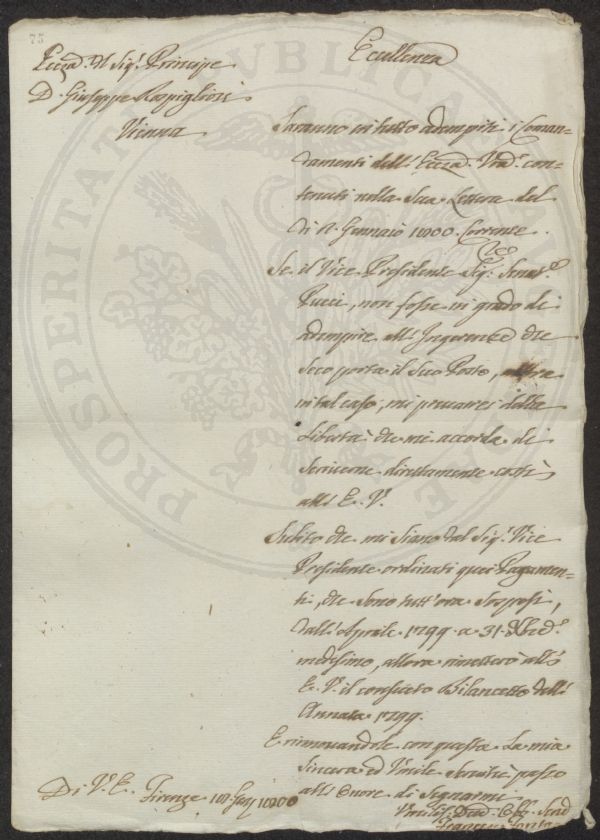 75
Eccellenza
Eccza. del Sigr. Principe
D. Giuseppe Rospigliosi
Vienna
Saranno in tutto adempiti i Coman-
damenti dell' Eccza. Vra. con-
tenuti nella Sua Lettera del
di Gennaio 1800 Corrente.
Se il Vice Presidente Sigr. Senre.
Pucci, non fosse in grado di
adempire all' Ingerenze che
seco porta il Suo Posto,
in tal caso, mi prevarrei della
Libertà che mi accorda di
Scrivere direttamente costì
all' E. V.
Subito che mi siano dal Sigr. Vice
Presidente ordinati quei Pagamen-
ti, che sono tutt'ora sospesi,
dall' Aprile 1799 a 31 Xbre.
medesimo, allora rimetterò all'
E. V. il consueto Bilancetto dell'
Annata 1799.
E rinnovandole con questa La mia
sincera ed Umile Servitù passo
all' Onore di Segnarmi
Di V. E. Firenze 1800
PROSPERITATI PUBLICAE